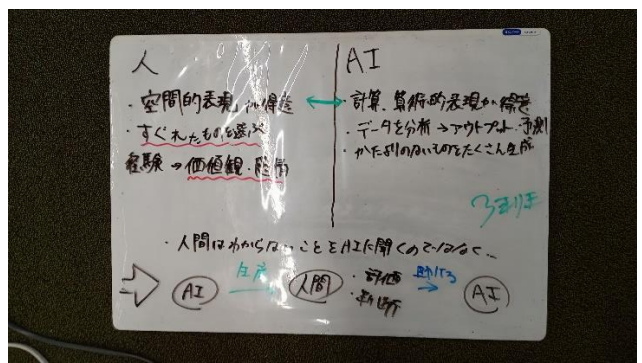 人
・空間的表現が得意
・すぐれたものを選ぶ
経験→価値観・
AI
・計算、算術的表現が得意
・データを分析→アウトプット・予測
・かたよりのないものをたくさん生成
・人間はわからないことをAIに聞くのではなく…
AI 生成 人間 ・評価 ・判断 助ける AI